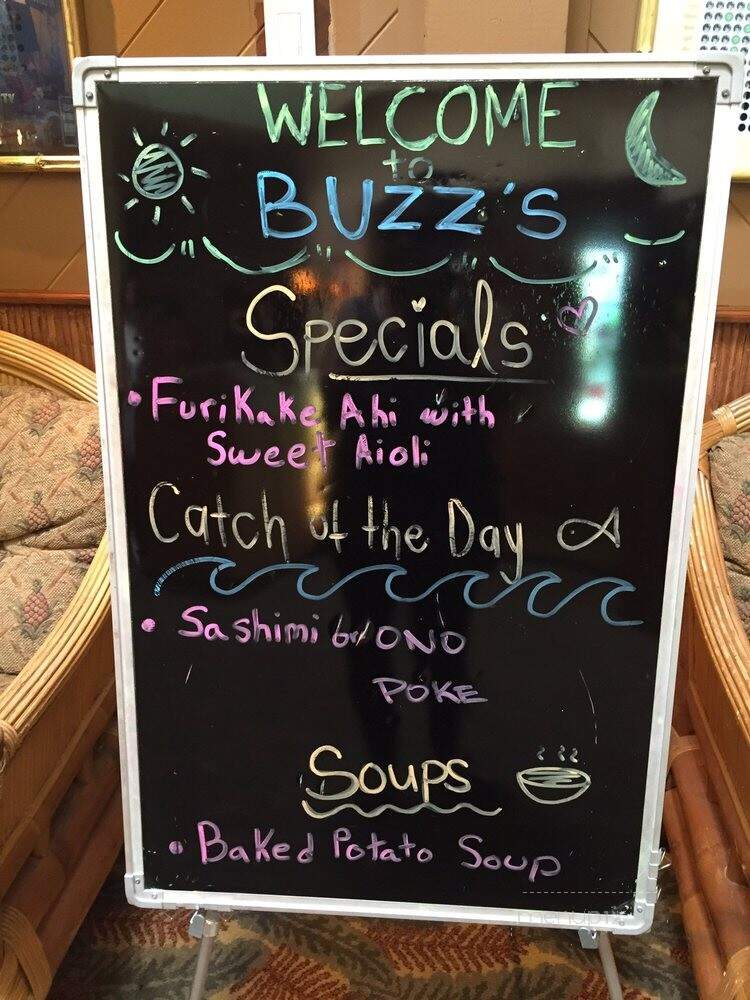 WELCOME
to
BUZZ'S
Specials
• Furikake Ahi with
Sweet Aioli
Catch of the Day
• Sashimi or ONO
POKE
Soups
• Baked Potato Soup